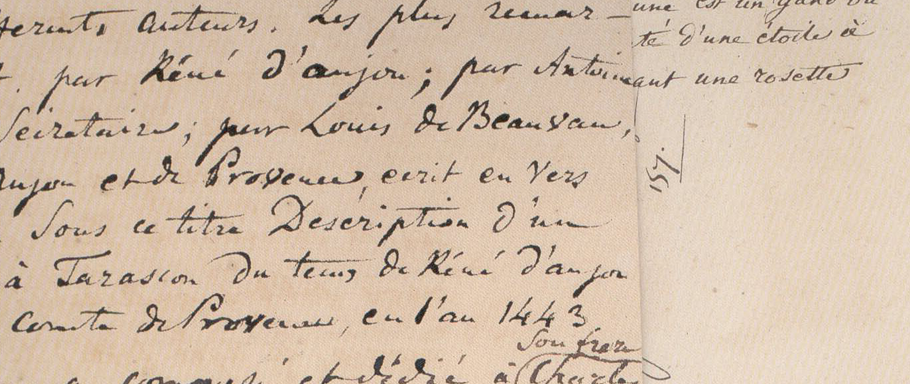 auteurs. Les plus remar-
par Réné d'anjou; par Antoin
Secretaire; par Louis de Beauvau,
anjou et de Provence, ecrit en Vers
Sous ce titre Description d'un
à Tarascon Du tems de Réné d'anjou
comte de Provence, en l'an 1443
Son frere
composé et dédié à Charle
une est un gand ou
té d'une étoile à
ant une rosette
157.